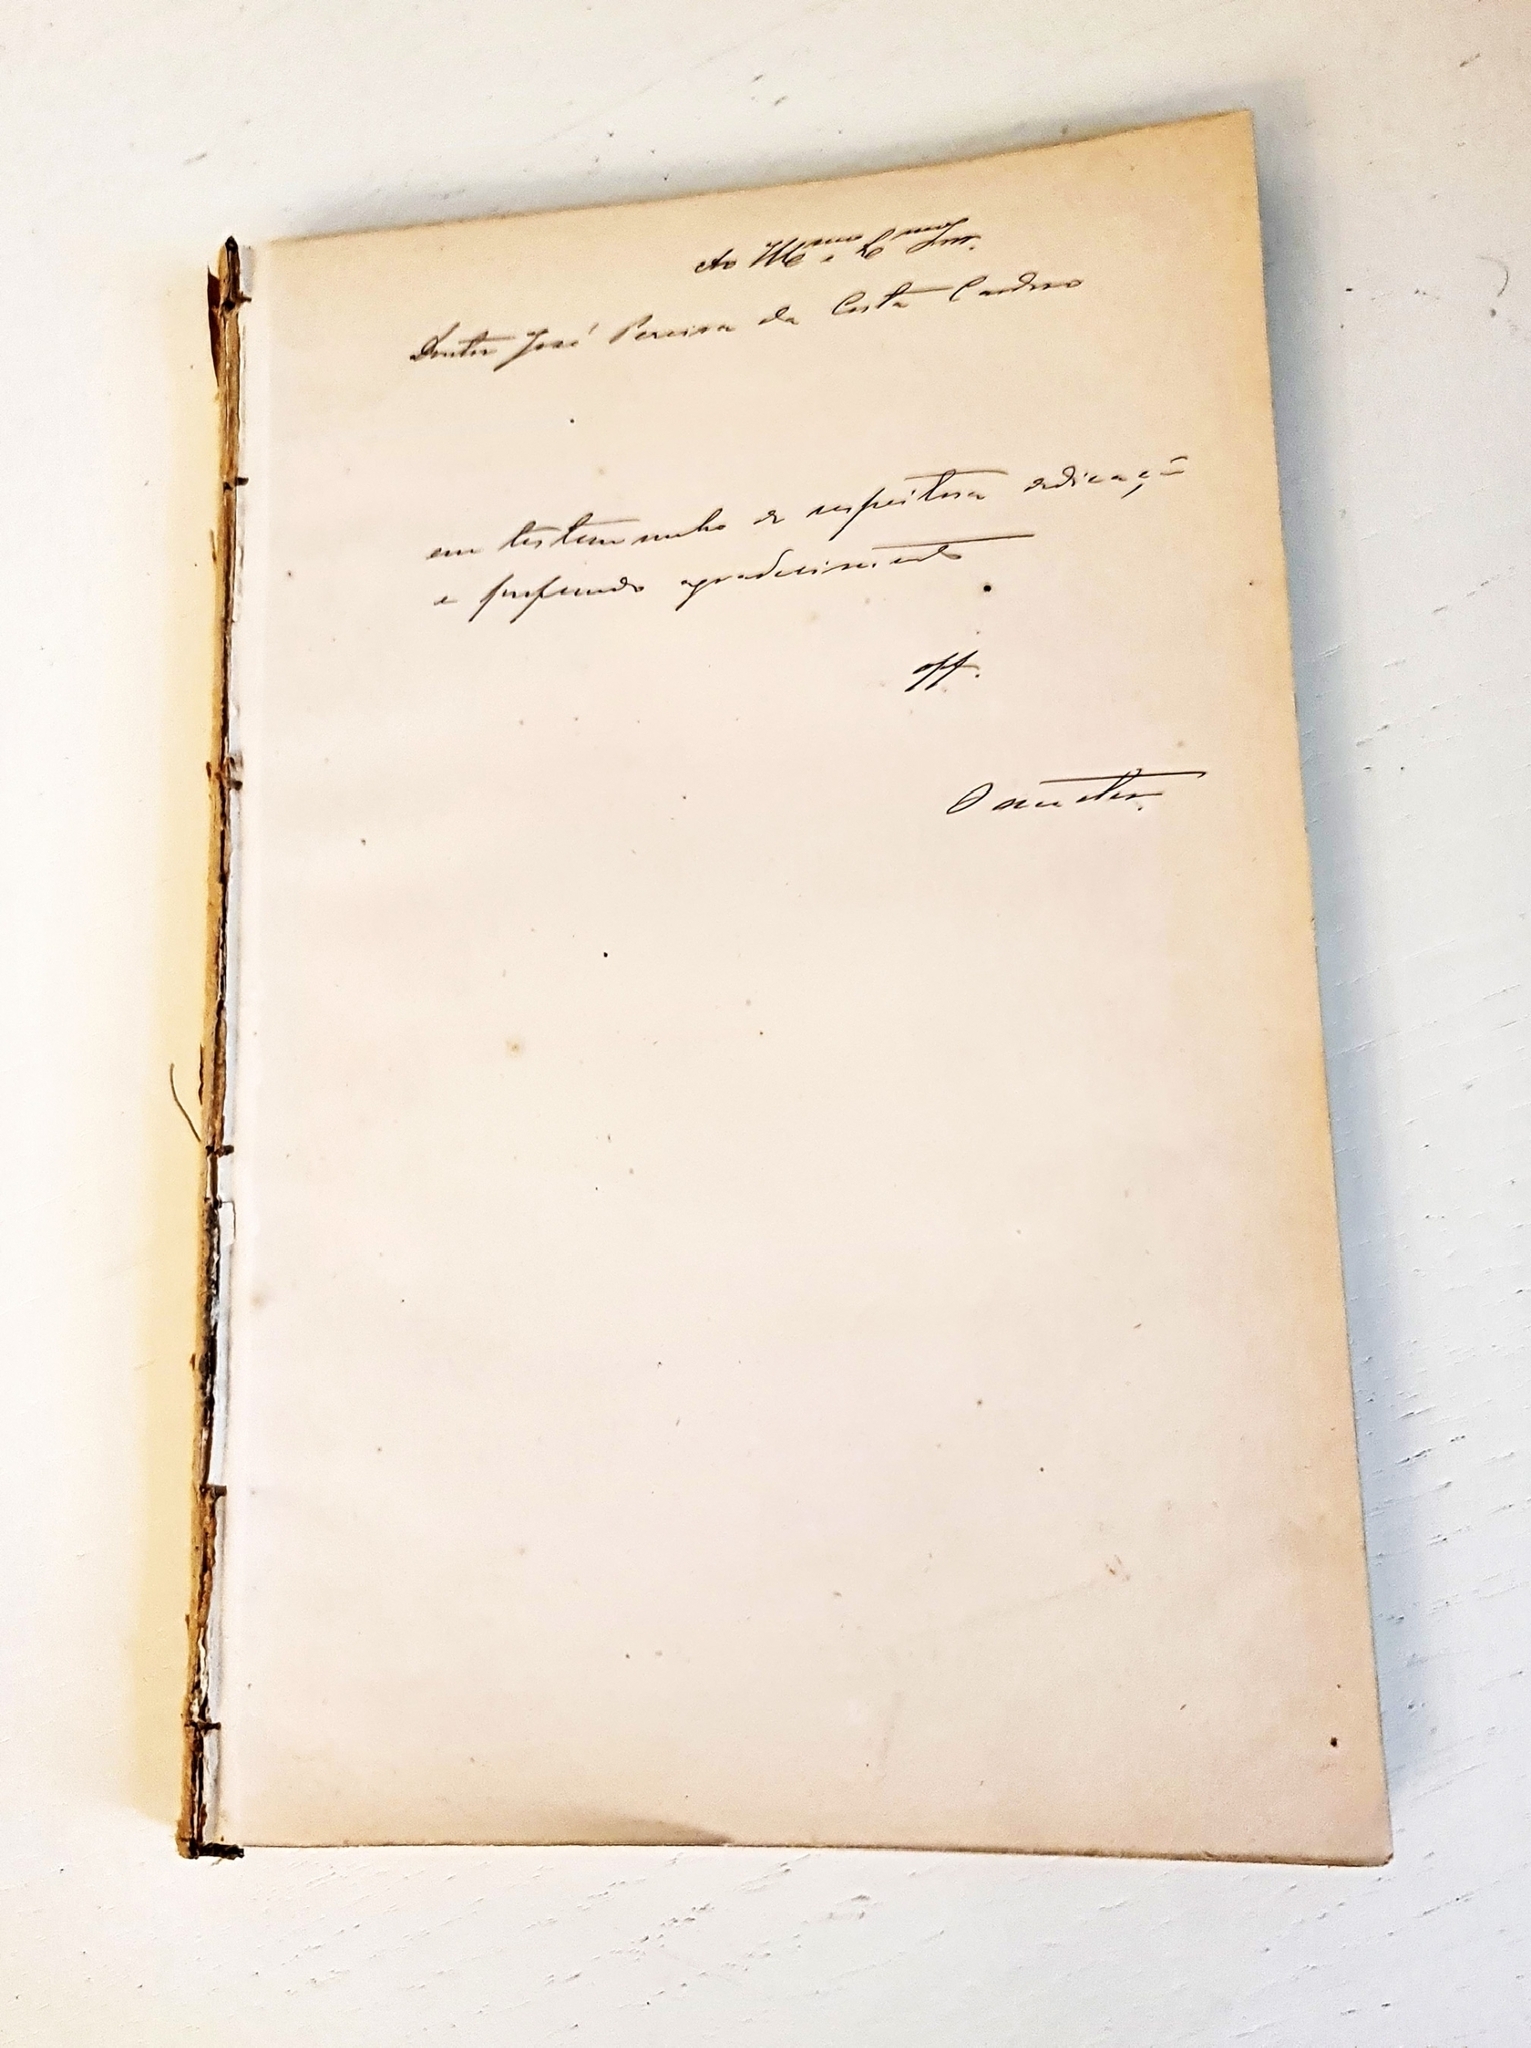 Ao Ill.mo e Ex.mo Snr.
Doutor José Pereira da Costa Cardoso
em testemunho de respeitosa dedicação
e profundo agradecimento
off.
O auctor.